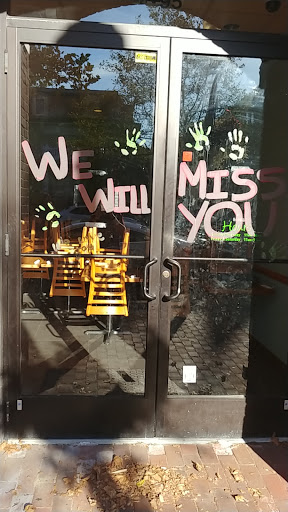 We Will
Miss
You